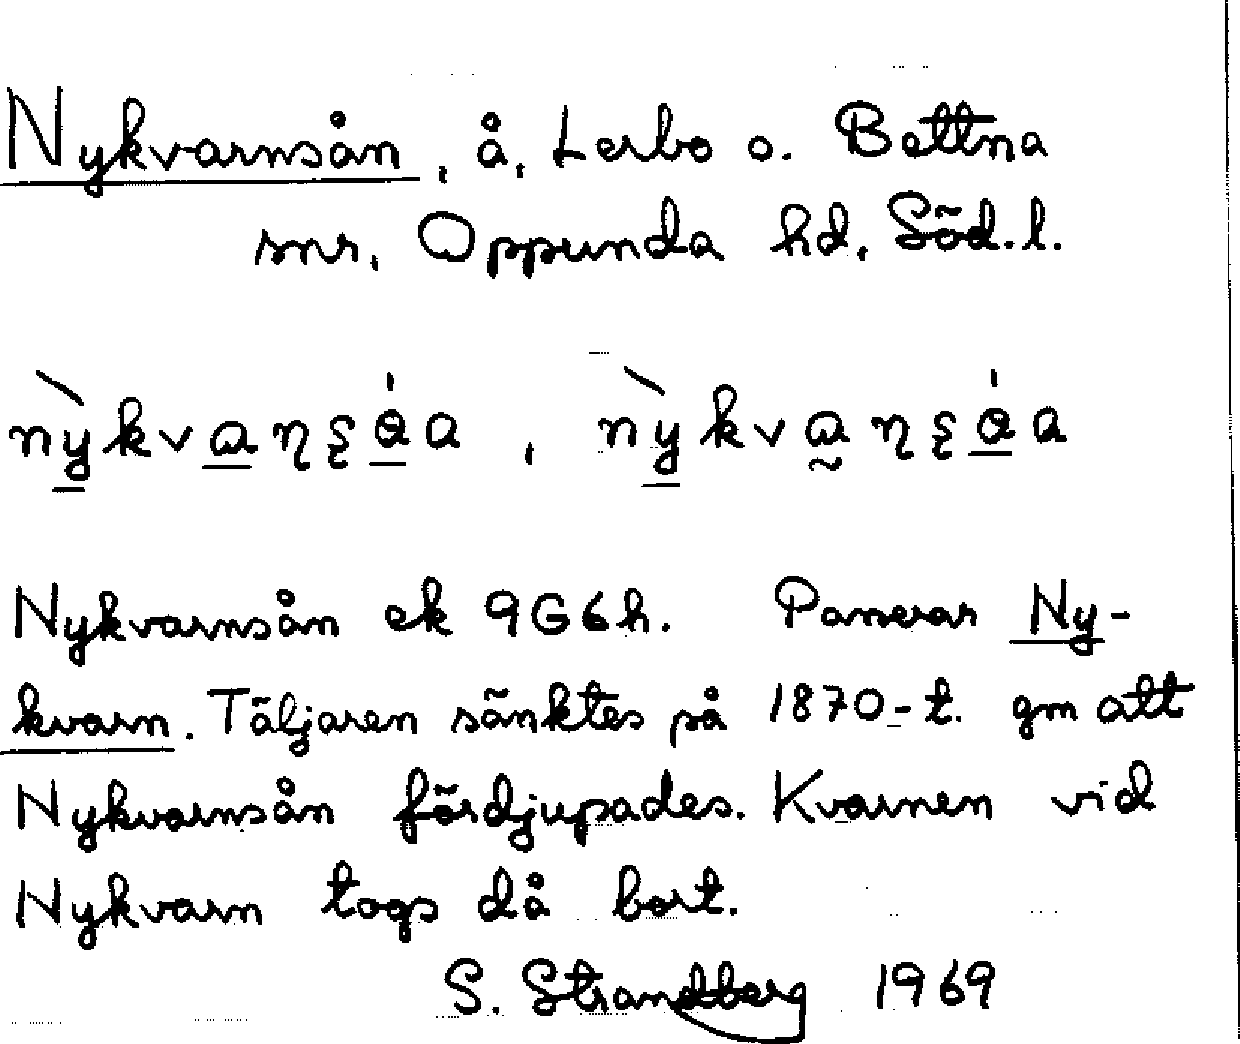 Nykvarnsån, å, Lerbo o. Bettna
snr, Oppunda hd, Söd.l.
Nykvarnsån ek 9G6h. Passerar Ny-
kvarn. Täljaren sänktes på 1870-t. gm att
Nykvarnsån fördjupades. Kvarnen vid
Nykvarn togs då bort.
S. Strandberg 1969